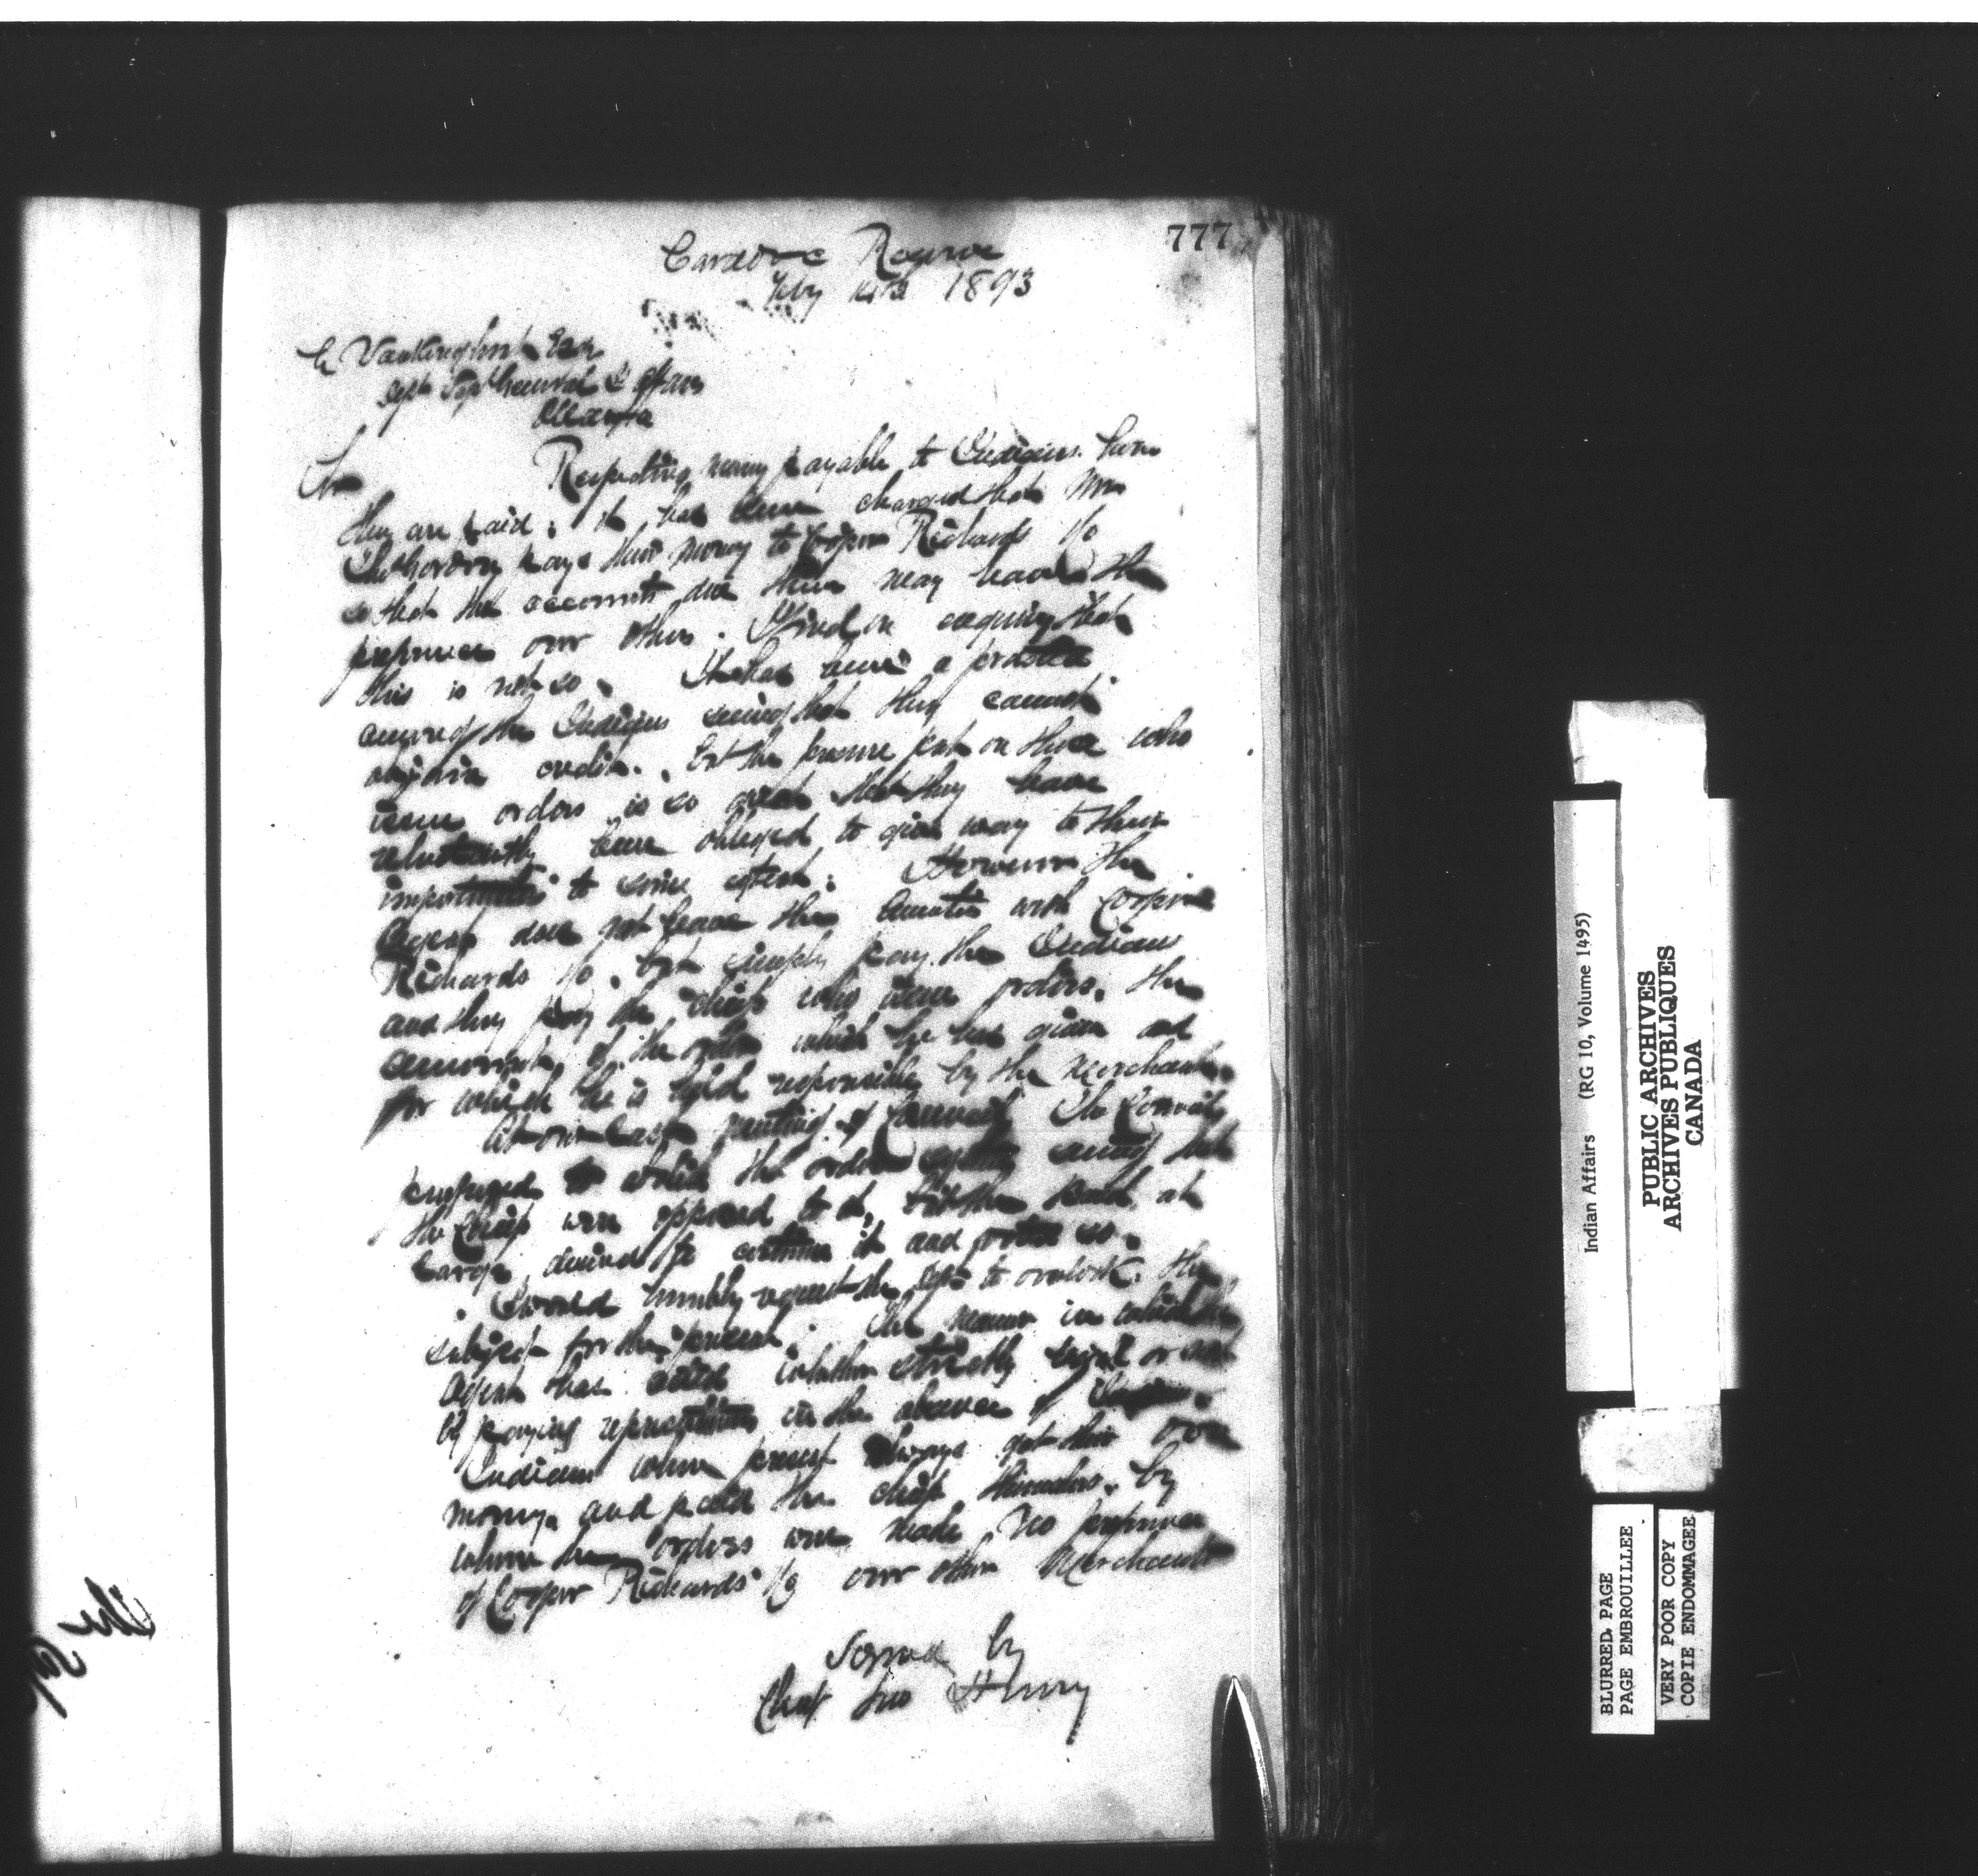 777
Caradoc Reserve
Feby 14th 1893
L Vankoughnet Esq
Dept Supt General I Affairs
Ottawa
Sir
Respecting money payable to Indians how
they are paid; it has been charged that Mr
pays their money to Cooper Richards Co
so that the accounts due them may have the
preference over others. I find on enquiry that
this is not so. It has been a practice
among the Indians seeing that they cannot
obtain credit. but the pressure put on those who
issue orders is so great that they have
reluctantly been obliged to give way to their
to some extent. However the
Agent does not leave the with Cooper
Richards Co, but simply pay the Indians
and they pay the chief who issue orders. the
amount of the orders which he has given and
for which he is held responsible by the Merchants.
At our last meeting of Council the Council
proposed to the order system that
the Chiefs were opposed to it, but the Band at
large desired to continue it and so.
I would humbly request the Dept to overlook the
subject for the present. The manner in which the
agent has acted whether strictly legal or not
by paying in the absence of
Indians when present always got their own
money. and paid the chiefs themselves. by
whom the orders were made, no preference
of Cooper Richards Co over other Merchants
Signed by
Chief Jno Henry
The
Indian Affairs (RG 10, Volume 1495)
PUBLIC ARCHIVES
ARCHIVES PUBLIQUES
CANADA
BLURRED PAGE
PAGE EMBROUILLEE
VERY POOR COPY
COPIE ENDOMMAGEE